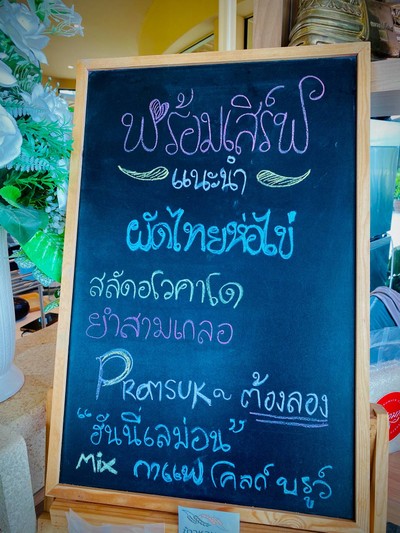 พร้อมเสิร์ฟ
แนะนำ
ผัดไทยห่อไข่
สลัดอโวคาโด
ยำสามเกลอ
PRamSUK ต้องลอง
"ฮันนี่เลม่อน"
Mix กาแฟ โคลด์ บรูว์